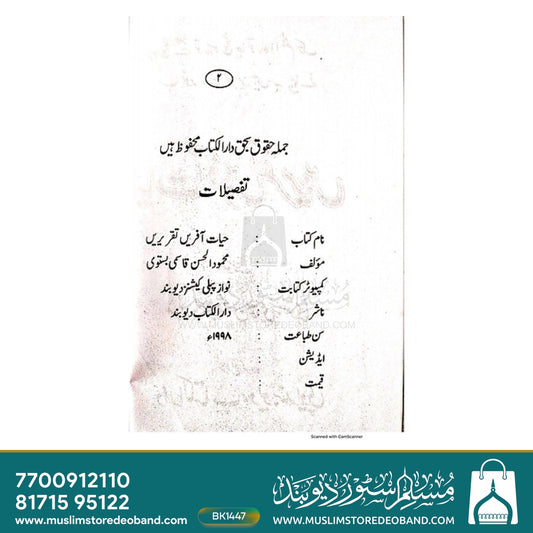 ۲
جملہ حقوق بحق دارالکتاب محفوظ ہیں
تفصیلات
نام کتاب : حیات آفریں تقریریں
مؤلف : محمود الحسن قاسمی بستوی
کمپیوٹر کتابت : نواز پبلی کیشنز دیوبند
ناشر : دارالکتاب دیوبند
سن طباعت : ۱۹۹۸ء
ایڈیشن :
قیمت :
WWW.MUSLIMSTOREDEOBAND.COM
Scanned with CamScanner
7700912110
81715 95122
www.muslimstoredeoband.com
BK1447
مسلم اسٹور دیوبند
WWW.MUSLIMSTOREDEOBAND.COM